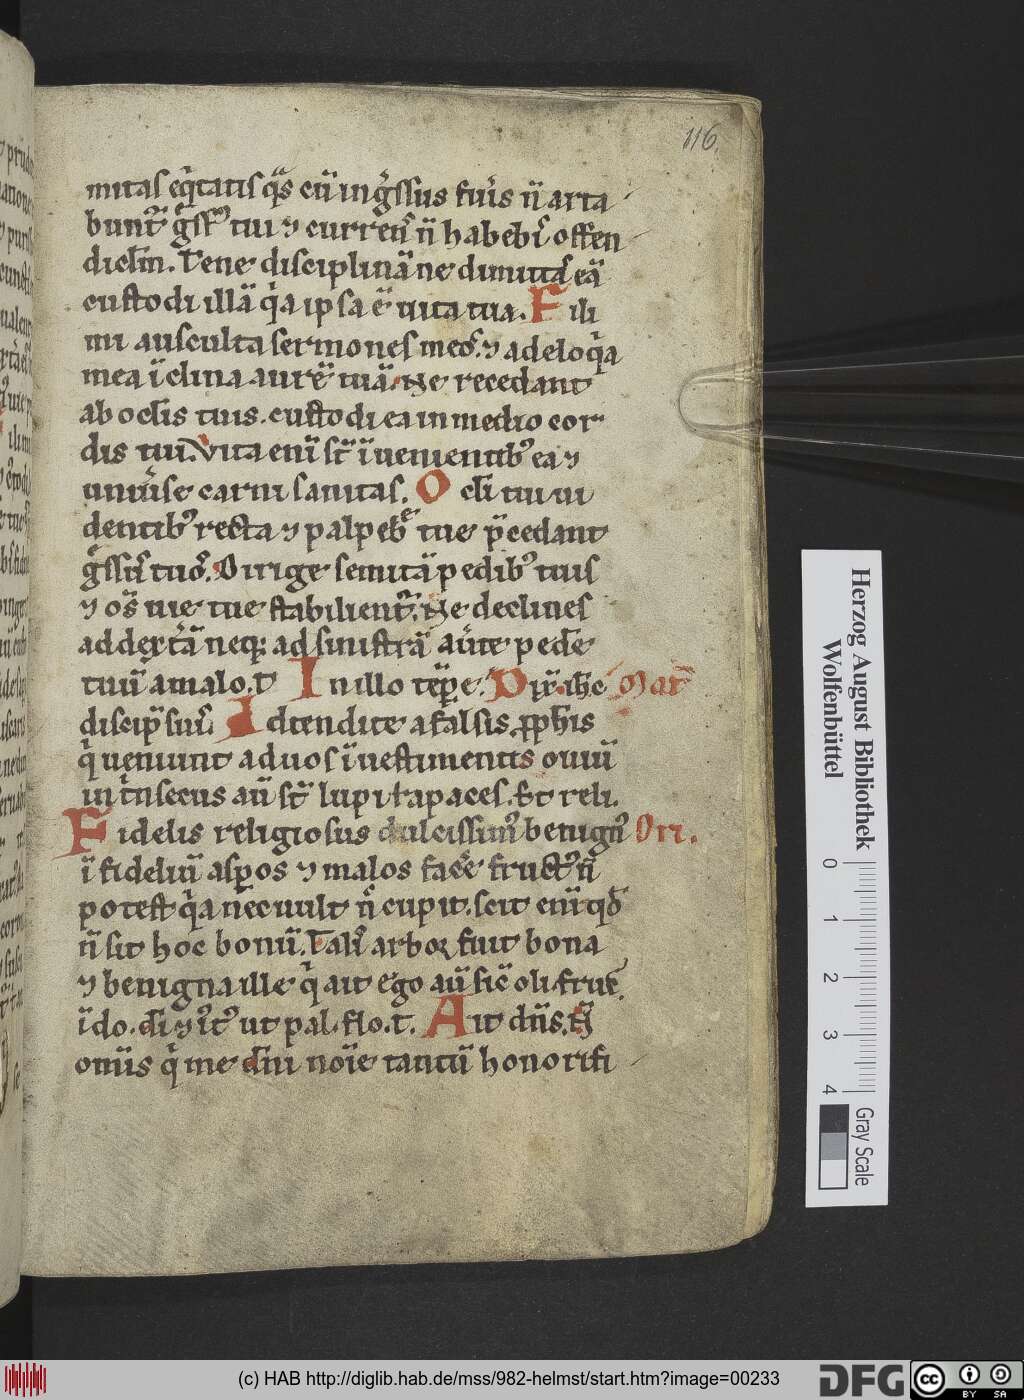 116.
mitas eq̾tatis q̾s cū ing̾ssus fu̾is n̄ arta
bunt᷑ g̾ssꝰ tui ⁊ currens̾ n̄ habebi̾s offen
diclm̄. Tene disciplinā ne dimittas eā
custodi illā q̾a ipsa ē uita tua. Fili
mi ausculta sermones meos̾. ⁊ ad eloq̾a
mea īclina aurē tuā. Ne recedant
ab oclis̄ tuis. custodi ea in medio cor
dis tui. Vita eni̅ st̄ īuenientibꝰ ea ⁊
uniu̾se carni sanitas. Ocl̄i tui ui
dentibꝰ recta ⁊ palpebᵉ̾ tue p̄cedant
g̾ssū tuos̾. Dirige semitā pedibꝰ tuis
⁊ os̄ uie tue stabilient᷑. Ne declines
ad dext̾ā neqꝫ ad sinistrā au̾te pede̅
tuū a malo. t̄ In illo tēpꝑe. Dix̄. ih̄c Mat̄
discip̄ suis̾ Adtendite a falsis ꝓph̄is
q̾ ueniunt ad uos ī uestimentis ouiū
int̾nsecus aū st̄ lupi rapaces. Et reli.
Fidelis religiosus dulcissimꝰ benignꝰ Ori.
ī fideliū asp̾os ⁊ malos face̾ fructꝰ n̄
potest q̾a nec uult n̄ cupit. scit eni̅ qd̄
n̄ sit hoc bonū. Talis̾ arboꝛ fuit bona
⁊ benigna ille q̾ ait ego aū sic̄ oli. fruc̄.
ī do. di̅ ⁊ it̾ꝰ ut pal. flo. t. Ait dn̄s. N̄
om̄is q̾ me dn̄i noi̅e tantū honorifi
Herzog August Bibliothek
Wolfenbüttel
0
1
2
3
4
Gray Scale
(c) HAB http://diglib.hab.de/mss/982-helmst/start.htm?image=00233
DFG
cc
BY SA